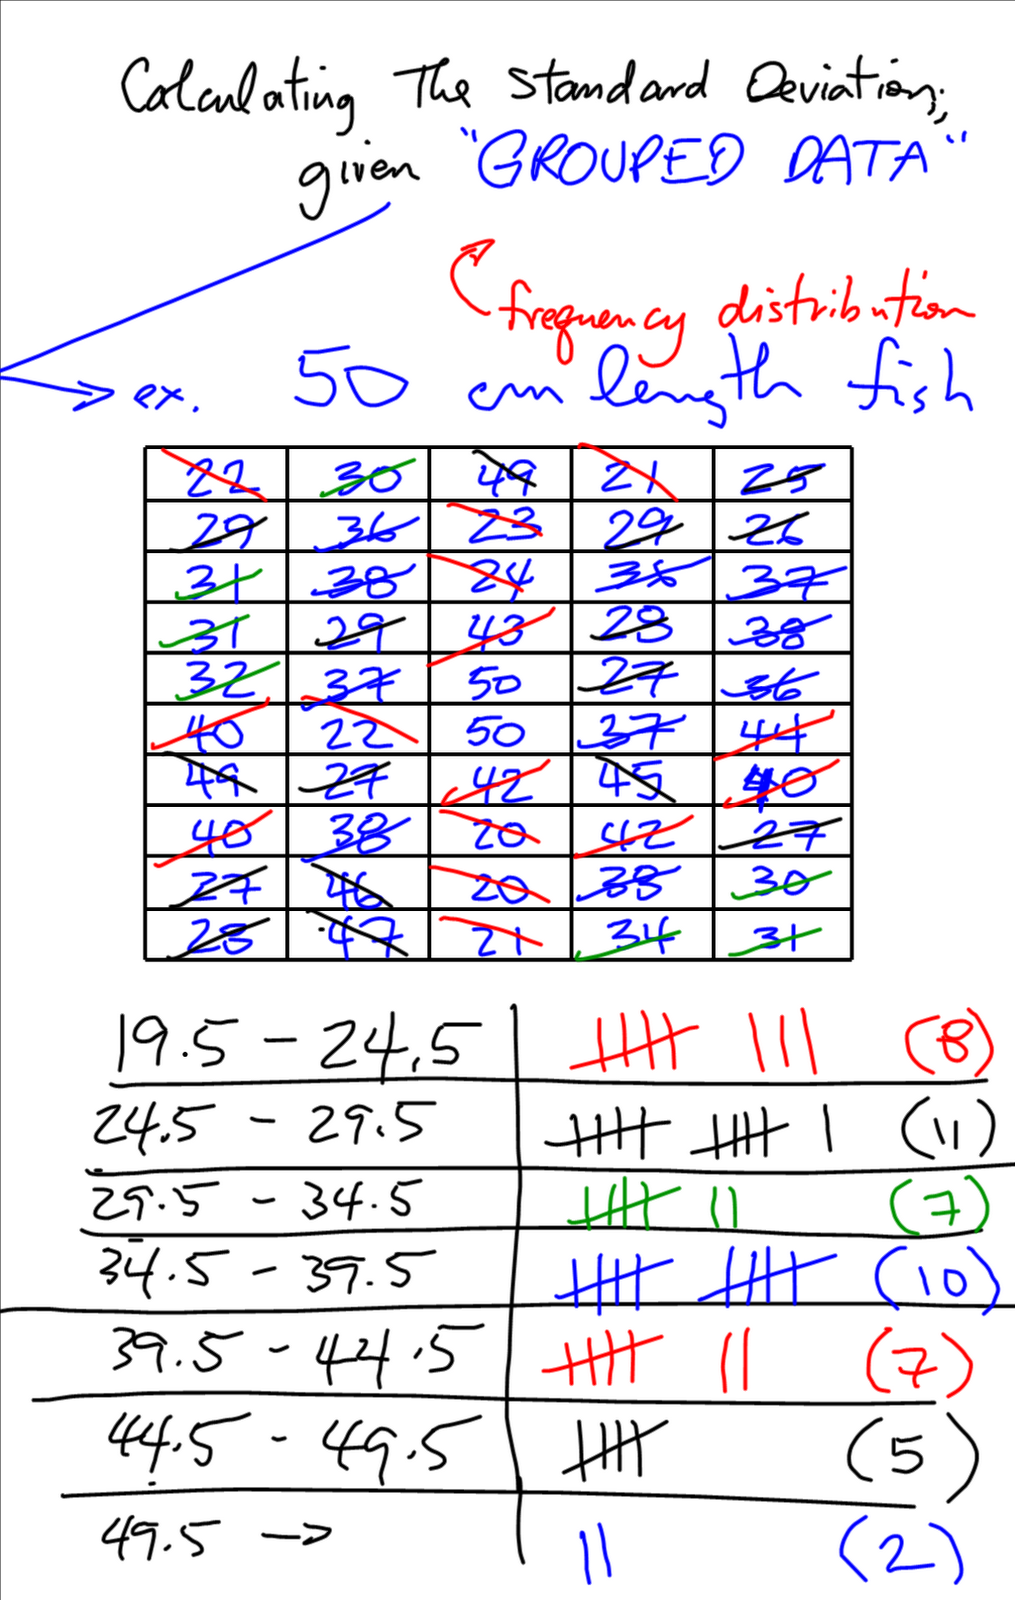 Calculating The Standard Deviation,
given "GROUPED DATA"
frequency distribution
ex. 50 cm length fish
22 30 49 21 25
29 36 23 29 26
31 38 24 37
31 29 43 28 38
32 37 50 27 36
40 22 50 37 44
49 27 42 45 40
40 38 20 42 27
27 46 20 38 30
28 47 21 34 31
19.5 - 24.5 (8)
24.5 - 29.5 (11)
29.5 - 34.5 (7)
34.5 - 39.5 (10)
39.5 - 44.5 (7)
44.5 - 49.5 (5)
49.5 → (2)